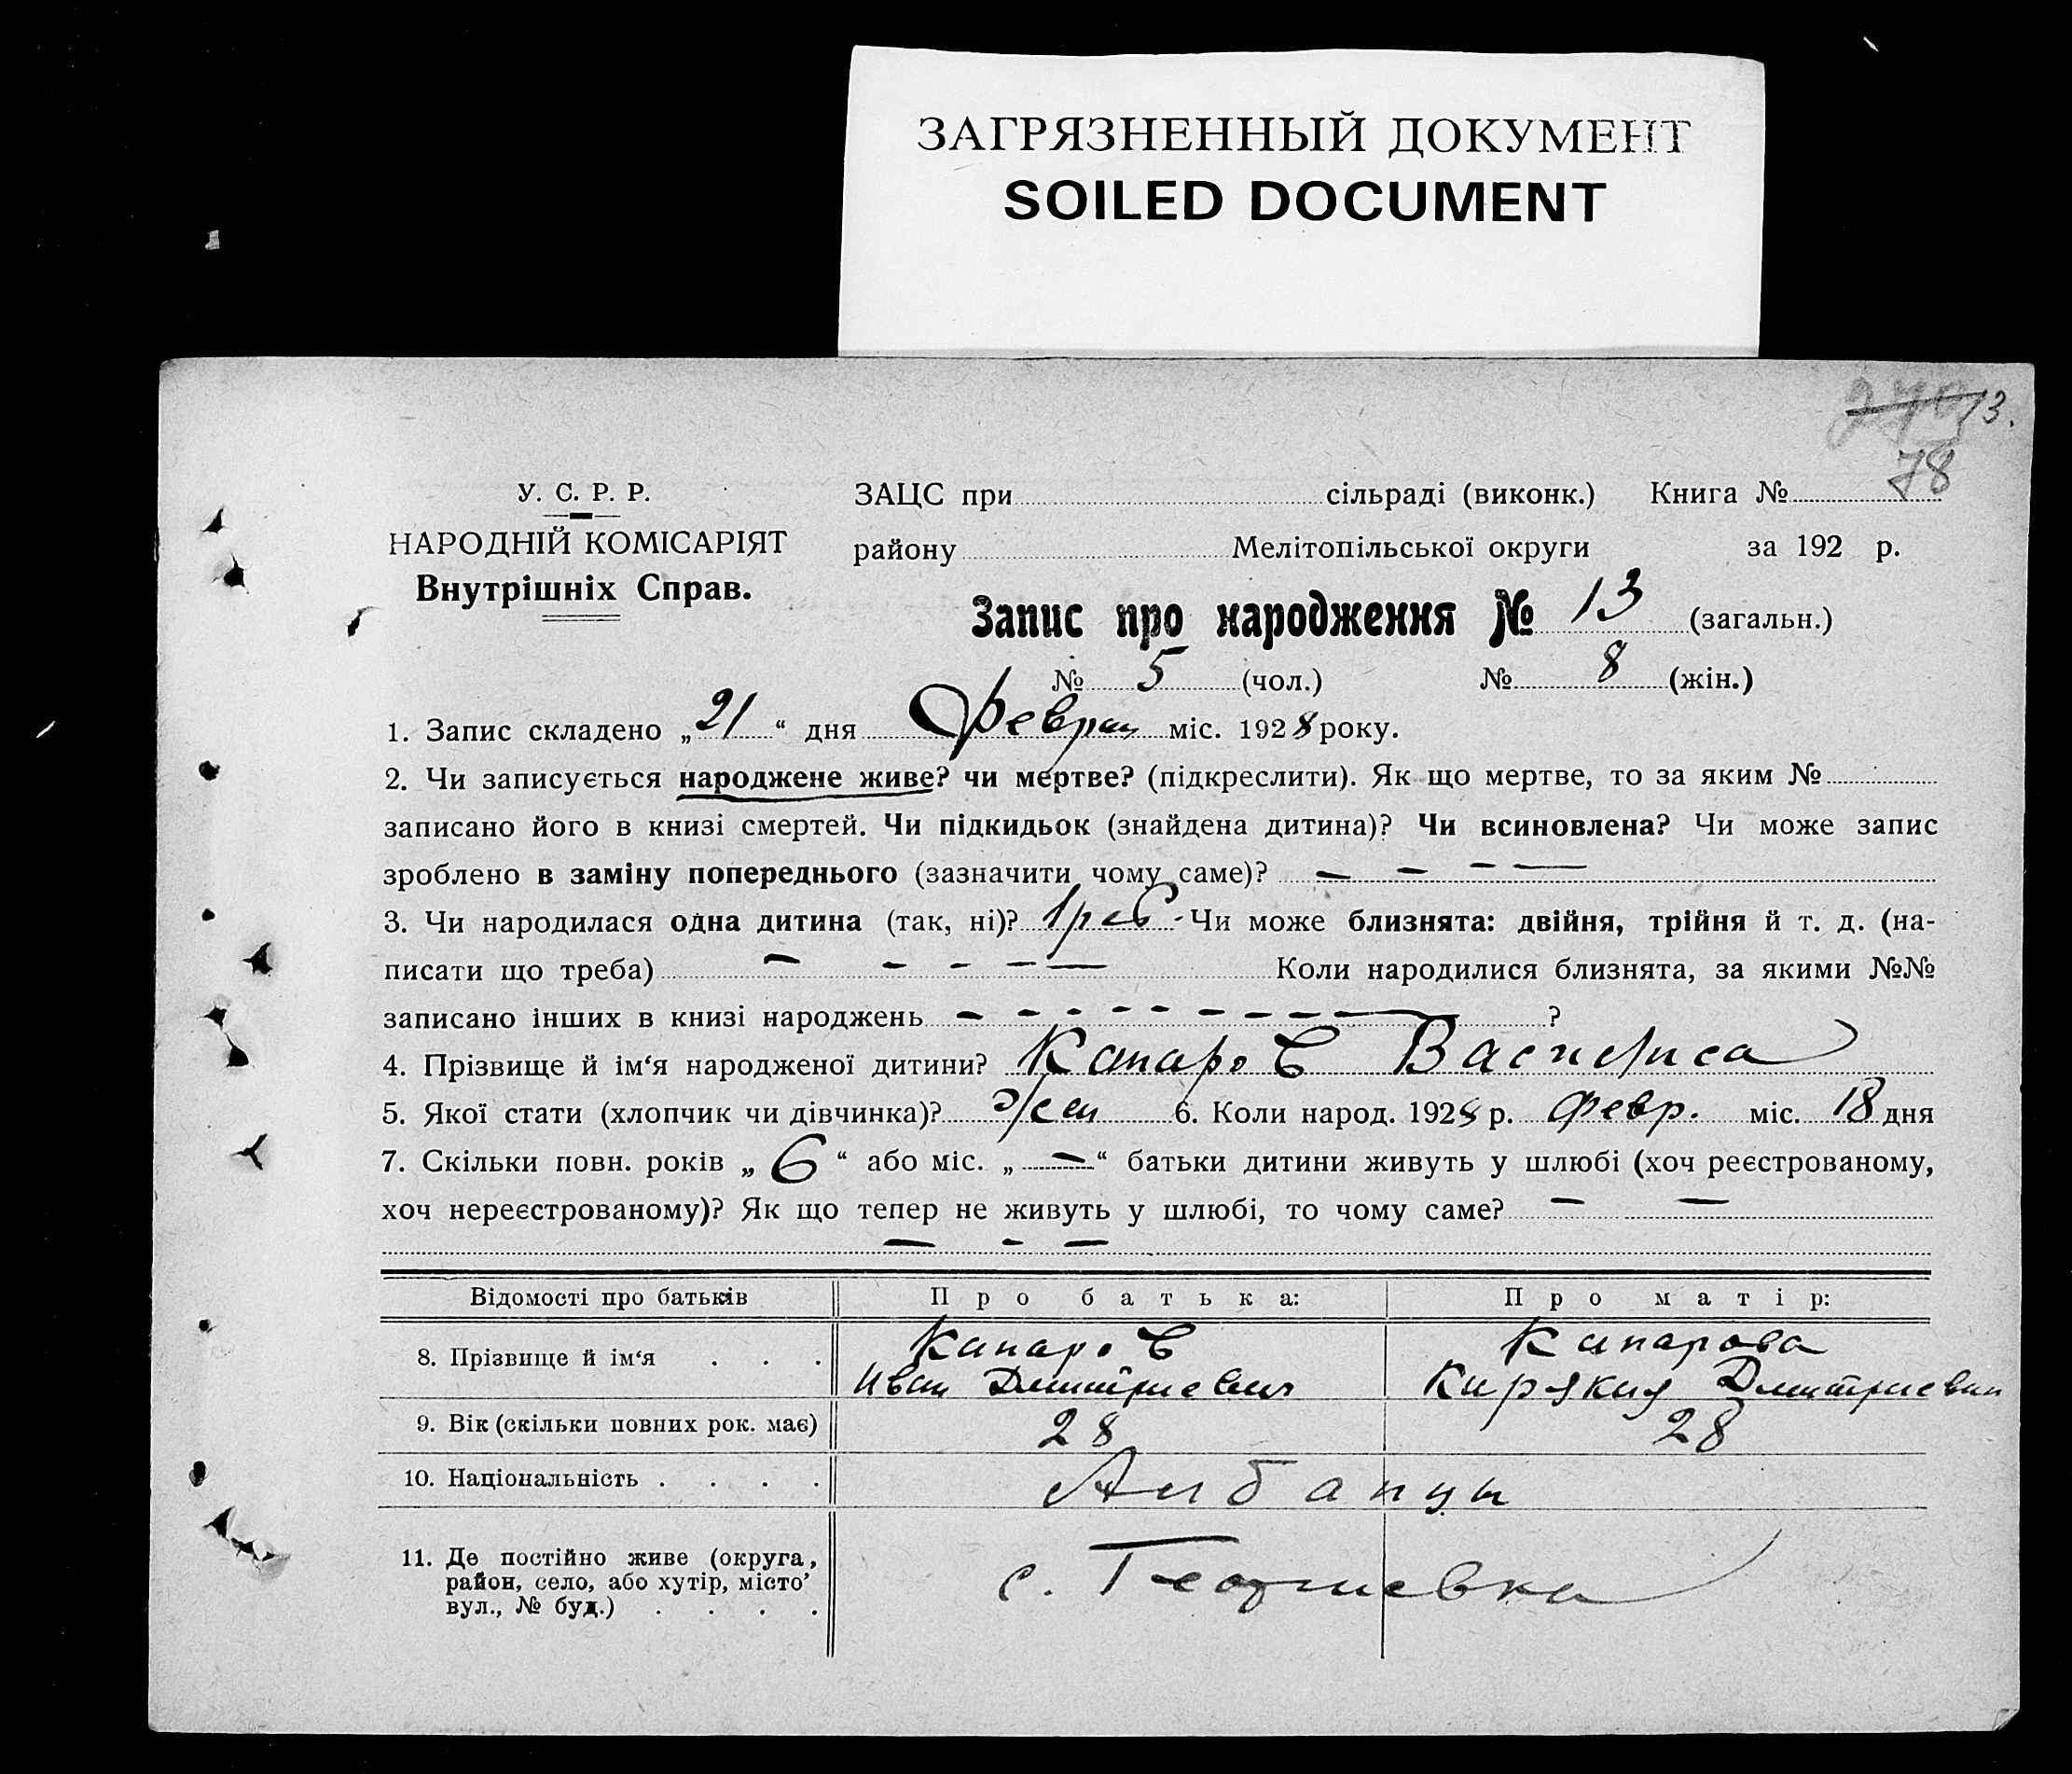 ЗАГРЯЗНЕННЫЙ ДОКУМЕНТ
SOILED DOCUMENT
13.
78
У. С. Р. Р.
НАРОДНІЙ КОМІСАРІЯТ
Внутрішніх Справ.
ЗАЦС при сільраді (виконк.) Книга №
району Мелітопільської округи за 192 р.
Запис про народження № 13 (загальн.)
№ 5 (чол.) № 8 (жін.)
1. Запис складено „21“ дня Феврал міс. 1928 року.
2. Чи записується народжене живе? чи мертве? (підкреслити). Як що мертве, то за яким №
записано його в книзі смертей. Чи підкидьок (знайдена дитина)? Чи всиновлена? Чи може запис
зроблено в заміну попереднього (зазначити чому саме)? — — — —
3. Чи народилася одна дитина (так, ні)? 1 реб. Чи може близнята: двійня, трійня й т. д. (на-
писати що треба) — — — — — Коли народилися близнята, за якими №№
записано інших в книзі народжень — — — — — — — — — ?
4. Прізвище й ім‘я народженої дитини? Капаров Василиса
5. Якої стати (хлопчик чи дівчинка)? жен 6. Коли народ. 1928 р. Февр. міс. 18 дня
7. Скільки повн. років „6“ або міс. „—“ батьки дитини живуть у шлюбі (хоч реєстрованому,
хоч нереєстрованому)? Як що тепер не живуть у шлюбі, то чому саме? — —
— — —
Відомості про батьків Про батька: Про матір:
8. Прізвище й ім‘я . . . Капаров Капарова
Иван Дмитриевич Кирякия Дмитриевна
9. Вік (скільки повних рок. має) 28 28
10. Національність . . . . Албанцы
11. Де постійно живе (округа,
район, село, або хутір, місто’
вул., № буд.) . . . . с. Георгиевка